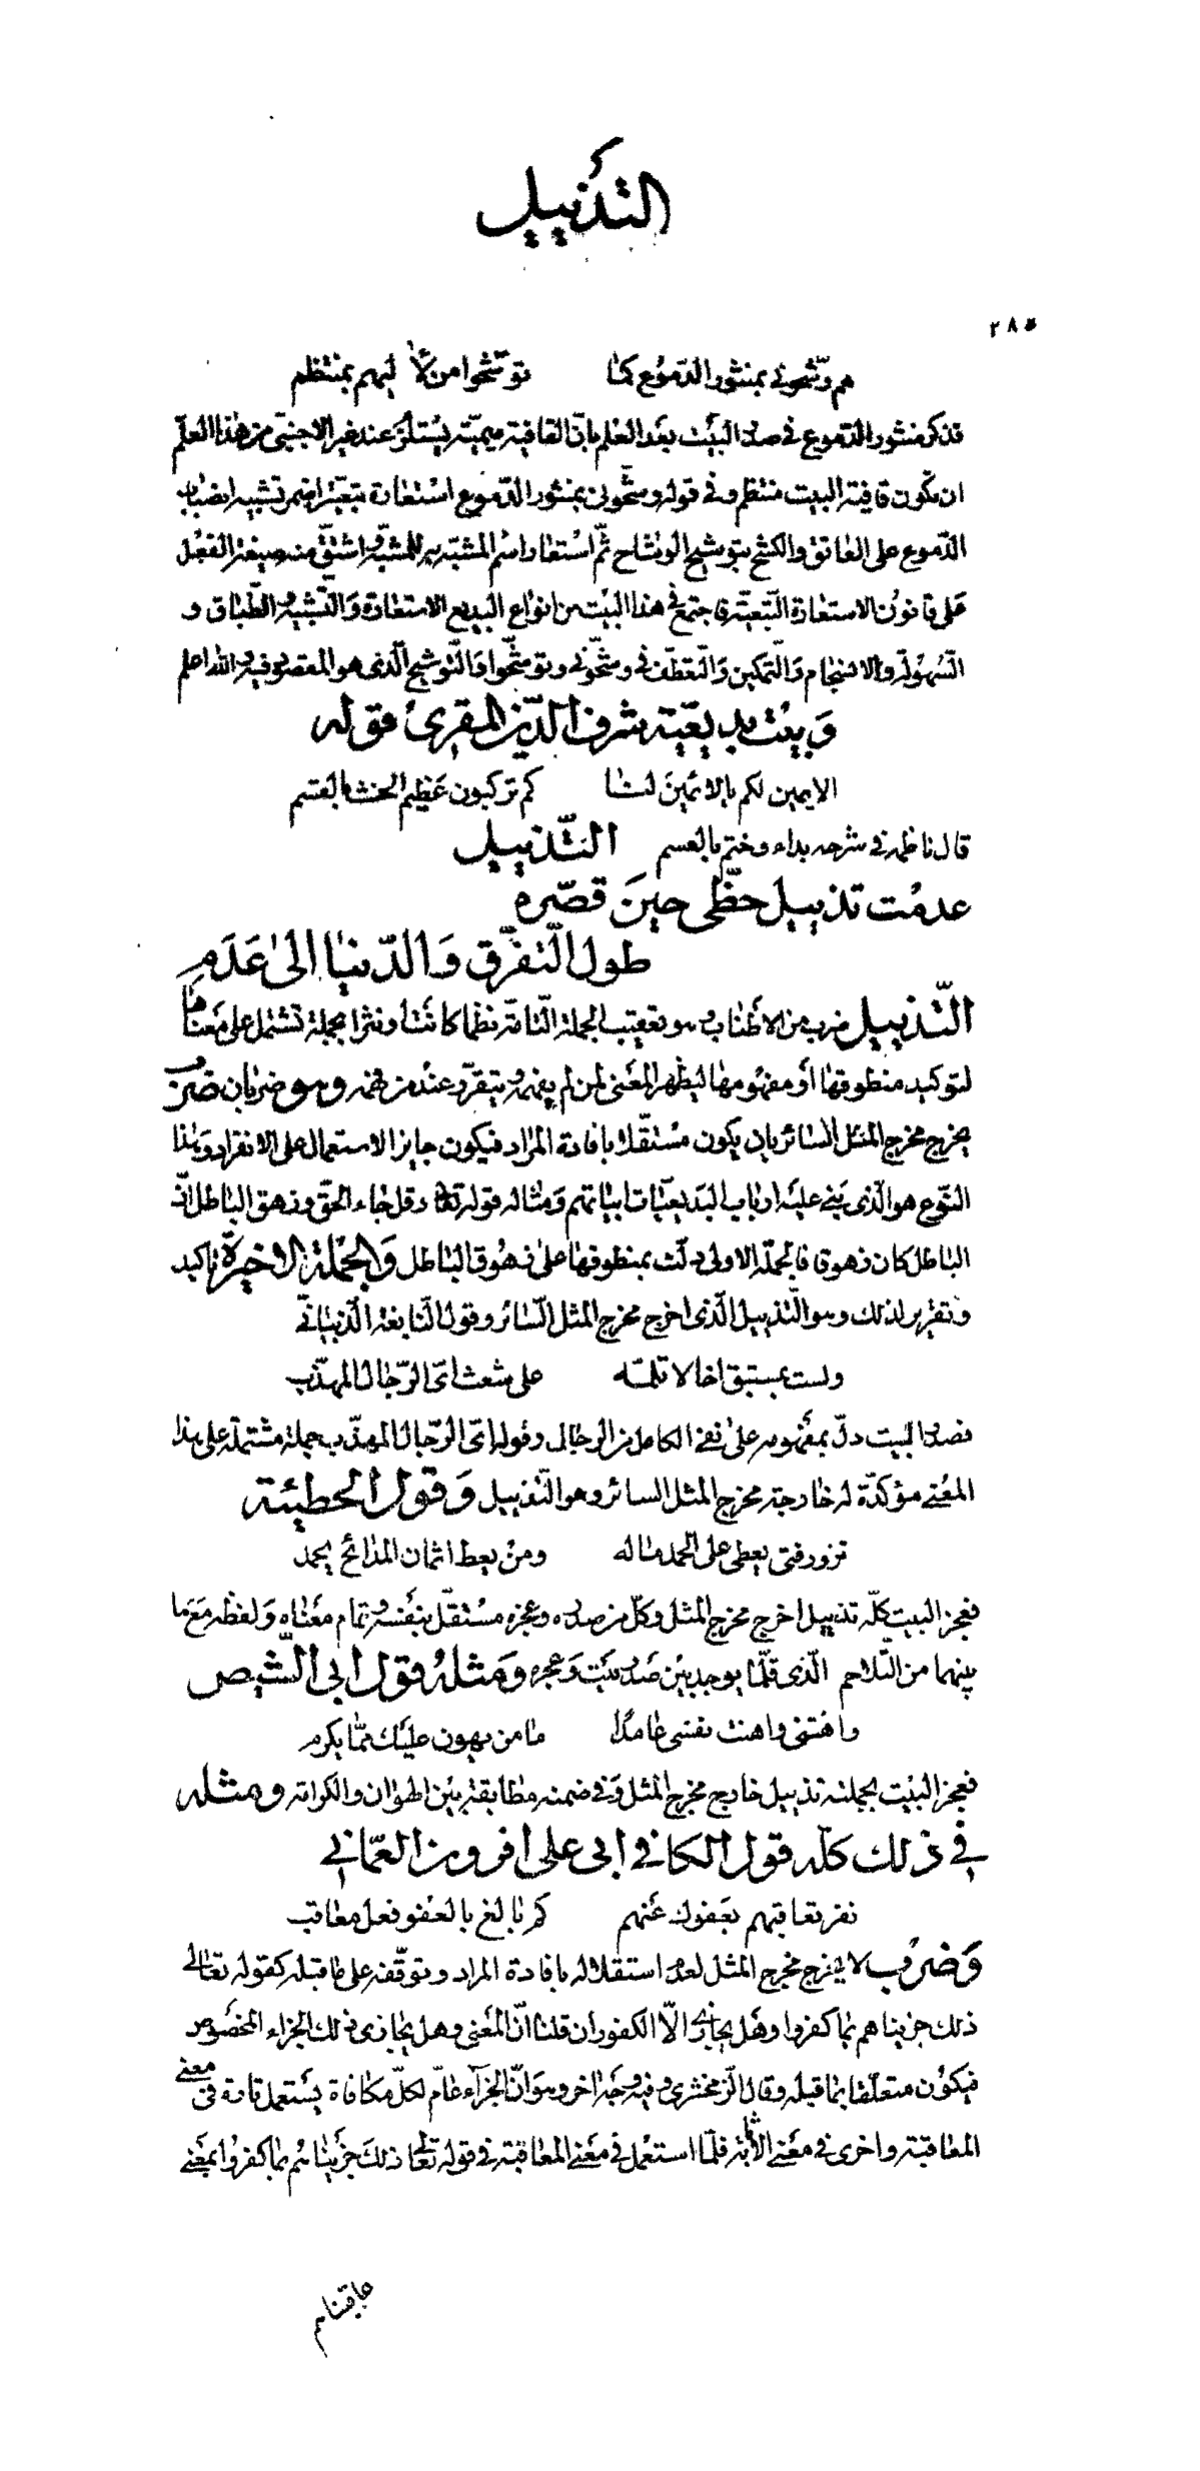 التذييل
٢٨٠
هم وشّحوني بمنثور الدّموع كما توشّحوا من لألئيهم بمنتظم
فذكر منثور الدّموع في صدر البيت بعد العلم بانّ القافية ميميّة يستلزم عند غير الاجنبيّ من هذا العلم
ان تكون قافية البيت منتظم وفي قوله وشّحوني بمنثور الدّموع استعارة تبعيّة اضمر تشبيه انصباب
الدّموع على العاتق والكشح بتوشيح الوشاح ثمّ استعار اسم المشبّه به للمشبّه واشتقّ منه صيغة الفعل
على قانون الاستعارة التّبعيّة فاجتمع في هذا البيت من انواع البديع الاستعارة والتّشبيه والطّباق و
السّهولة والانسجام والتّمكين والتّعطّف في وشّحوني وتوشّحوا والتّوشيح الّذى هو المقصود فيه والله اعلم
وبيت بديعيّة شرف الدّين المقرئ قوله
الايمين لكم بالائمين لنا كم تركبون عظيم الحنث بالقسم
قال ناظمه في شرحه بداء وختم بالقسم التّذييل
عدمت تذييل حظّي حين قصّره
طول التّفرّق والدّنيا الى عدم
التّذييل ضرب من الاطناب وهو تعقيب الجملة التّامّة نظما كانت او نثرا بجملة تشتمل على معناها
لتوكيد منطوقها او مفهومها ليظهر المعنى لمن لم يفهمه ويتقرّر عند من فهمه وهو ضربان ضرب
يخرج مخرج المثل السائر بان يكون مستقلّا بافادة المراد فيكون جايز الاستعمال على الانفراد وهذا
النّوع هو الّذى بنى عليه ارباب البديعيّات ابياتهم ومثاله قوله تعالى وقل جاء الحقّ وزهق الباطل انّ
الباطل كان زهوقا فالجملة الاولى دلّت بمنطوقها على زهوق الباطل والجملة الاخيرة تاكيد
وتقرير لذلك وهو التّذييل الّذى اخرج مخرج المثل السّائر وقول النّابغة الذّبيانيّ
ولست بمستبق اخا لا تلمّه على شعث اىّ الرّجال المهذّب
فصدر البيت دلّ بمفهومه على نفي الكامل من الرجال وقوله اىّ الرّجال المهذّب جملة مشتملة على هذا
المعنى مؤكدّة له خارجة مخرج المثل السائر وهو التّذييل وقول الحطيئة
تزور فتى يعطى على الحمد ماله ومن يعط اثمان المدائح يحمد
فعجز البيت كلّه تذييل اخرج مخرج المثل وكلّ من صدره وعجزه مستقلّ بنفسه وتمام معناه ولفظه مع ما
بينهما من التّلاحم الّذى قلّما يوجد بين صدر بيت وعجزه ومثله قول ابى الشّيص
واهنتنى واهنت نفسى عامدا ما من يهون عليك ممّا يكرم
فعجز البيت بجملته تذييل خارج مخرج المثل وفي ضمنه مطابقة بين الهوان والكرامة ومثله
في ذلك كلّه قول الكافي ابى على افروز العمّاني
نفر تعاقبهم بعفوك عنهم كم بالغ بالعفو فعل معاقب
وضرب لا يخرج مخرج المثل لعدم استقلاله بافادة المراد وتوقّفه على ما قبله كقوله تعالى
ذلك جزيناهم بما كفروا وهل يجازى الّا الكفور ان قلنا انّ المعنى وهل يجازى ذلك الجزاء المخصوص
فيكون متعلّقا بما قبله وقال الزمخشرى وفيه وجه اخر وهو انّ الجزاء عامّ لكلّ مكافاة يستعمل تارة في معنى
المعاقبة واخرى في معنى الاثابة فلمّا استعمل في معنى المعاقبة في قوله تعالى ذلك جزيناهم بما كفروا بمعنى
عاقبناهم